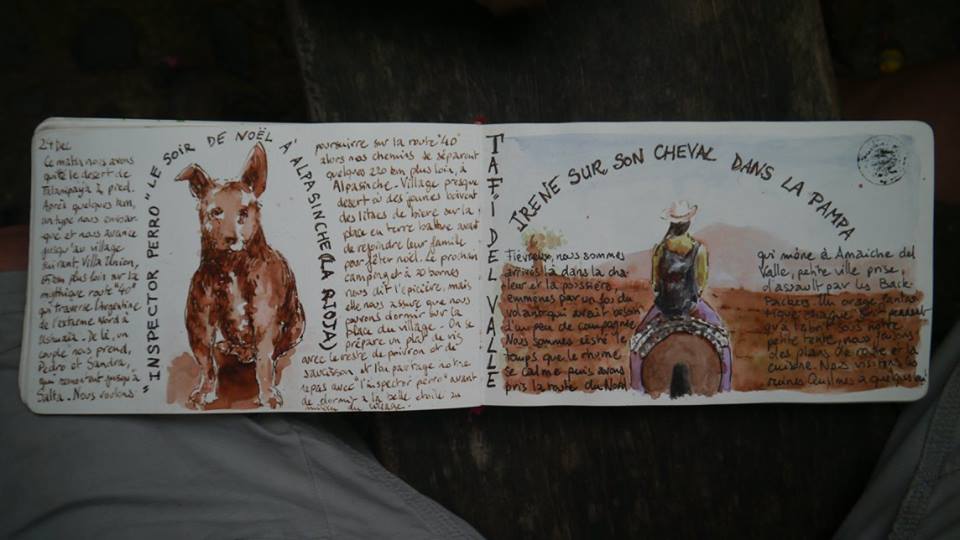 24 Dec
Ce matin nous avons
quitté le désert de
Talampaya à pied.
Après quelques km,
un type nous embar-
que et nous avance
jusqu'au village
suivant, Villa Union,
plus loin sur la
mythique route "40"
qui traverse l'argentine
de l'extrème nord à
Ushuaia. De là, un
couple nous prend,
Pedro et Sandra,
qui remontent jusqu'à
Salta. Nous voulons
"INSPECTOR PERRO" LE SOIR DE NOËL À ALPASINCHE (LA RIOJA)
poursuivre sur la route "40"
alors nos chemins se séparent
quelques 220 km plus loin, à
Alpasinche. Village presque
desert où des jeunes boivent
des litres de bière sur la
place en terre battue avant
de rejoindre leur famille
pour fêter noël. Le prochain
camping est à 20 bornes
nous dit l'épicière, mais
elle nous assure que nous
pouvons dormir sur la
place du village. On se
prépare un plat de riz
avec le reste de poivron et de
saucisson, et l'on partage notre
repas avec l'inspector perro avant
de dormir à la belle étoile au
milieu du village.
TAFI DEL VALLE
IRENE SUR SON CHEVAL DANS LA PAMPA
Fiévreux, nous sommes
arrivés là dans la cha-
leur et la poussière
emmenés par un fou du
volant qui avait besoin
d'un peu de compagnie.
Nous sommes resté le
temps que le rhume
se calme puis avons
pris la route du Nord
qui mène à Amaiche del
Valle, petite ville prise
d'assaut par les Back-
Packers. Un orage fantas-
tique pendant
qu'à l'abri sous notre
petite tente, nous faisons
des plans de route et la
cuisine. Nous visitons
ruines Quilmes à quelques